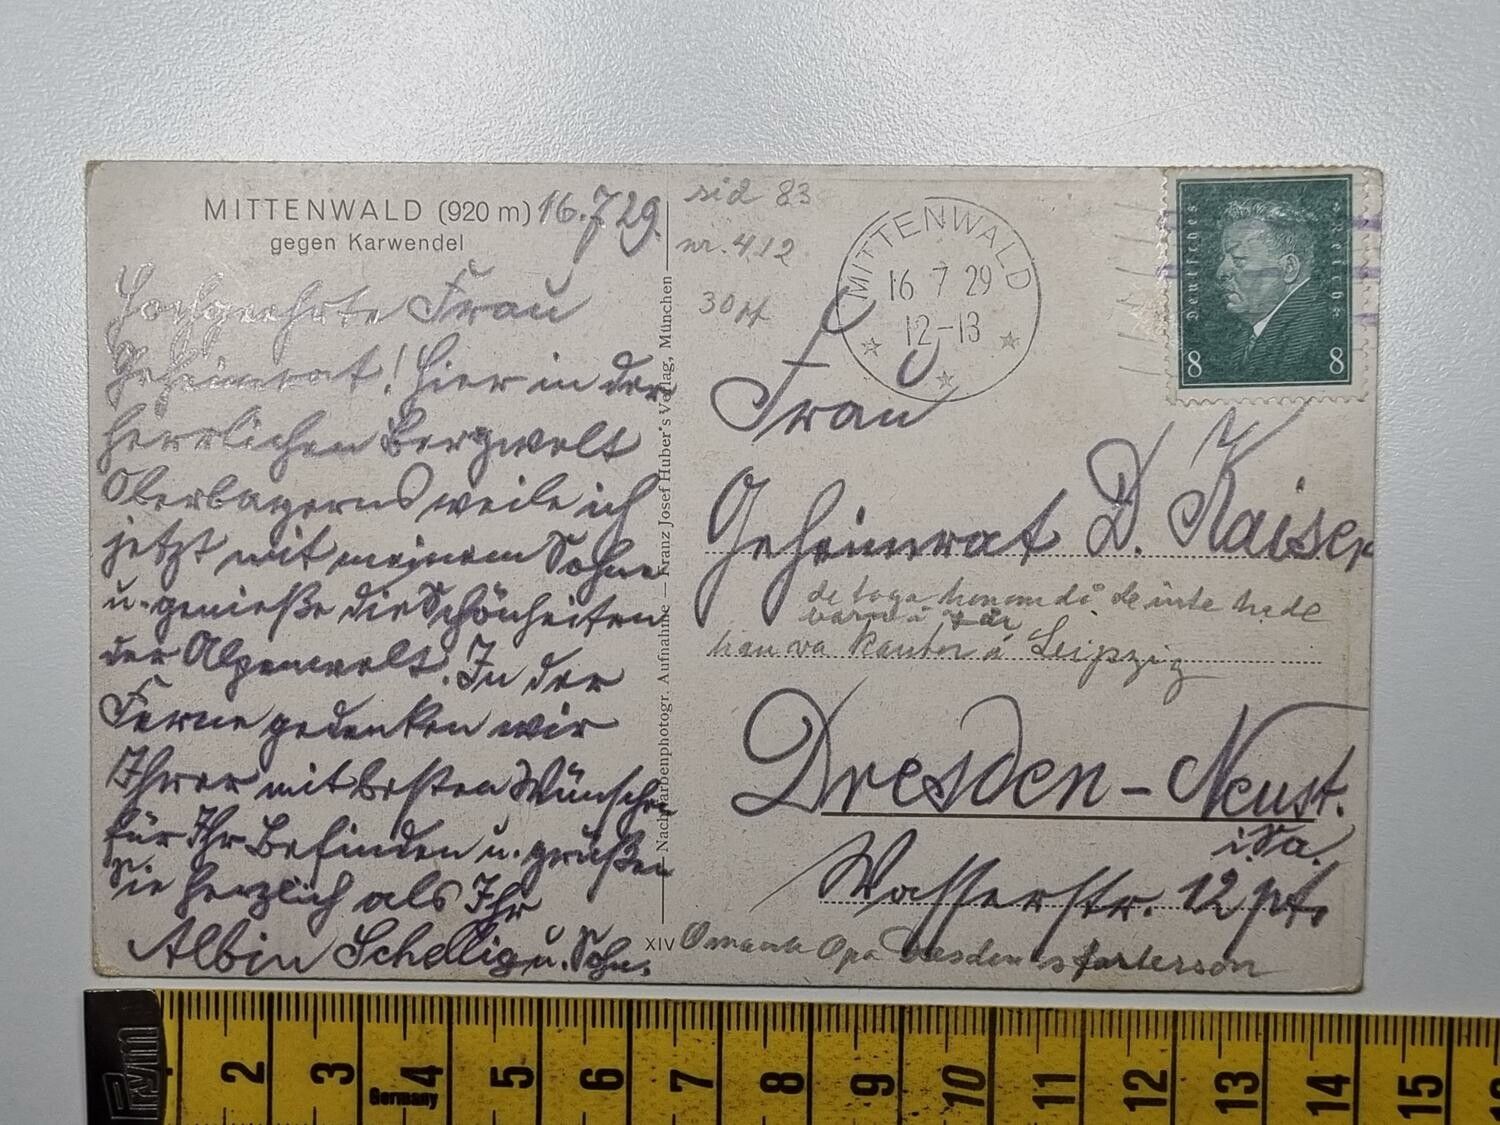 MITTENWALD (920 m) 16.7.29.
gegen Karwendel
Hochgeehrte Frau
Geheimrat! Hier in der
herrlichen Bergwelt
Oberbayerns weile ich
jetzt mit meinem Sohne
u. genieße die Schönheiten
der Alpenwelt. In der
Ferne gedenken wir
Ihrer mit besten Wünschen
für Ihr Befinden u. grüßen
Sie herzlich als Ihr
Albin Schellig u. Sohn.
Nachfarbenphotogr. Aufnahme — Franz Josef Huber's Verlag, München
XIV
sid 83
nr. 412
30
MITTENWALD
16 7 29
12-13
Deutsches Reich
8 8
Frau
Geheimrat D. Kaiser
de toga honom då de inte hade
barn
han va Kantor i Leipzig
Dresden-Neust.
i. Sa.
Wasserstr. 12 pt.
Opa Dresden